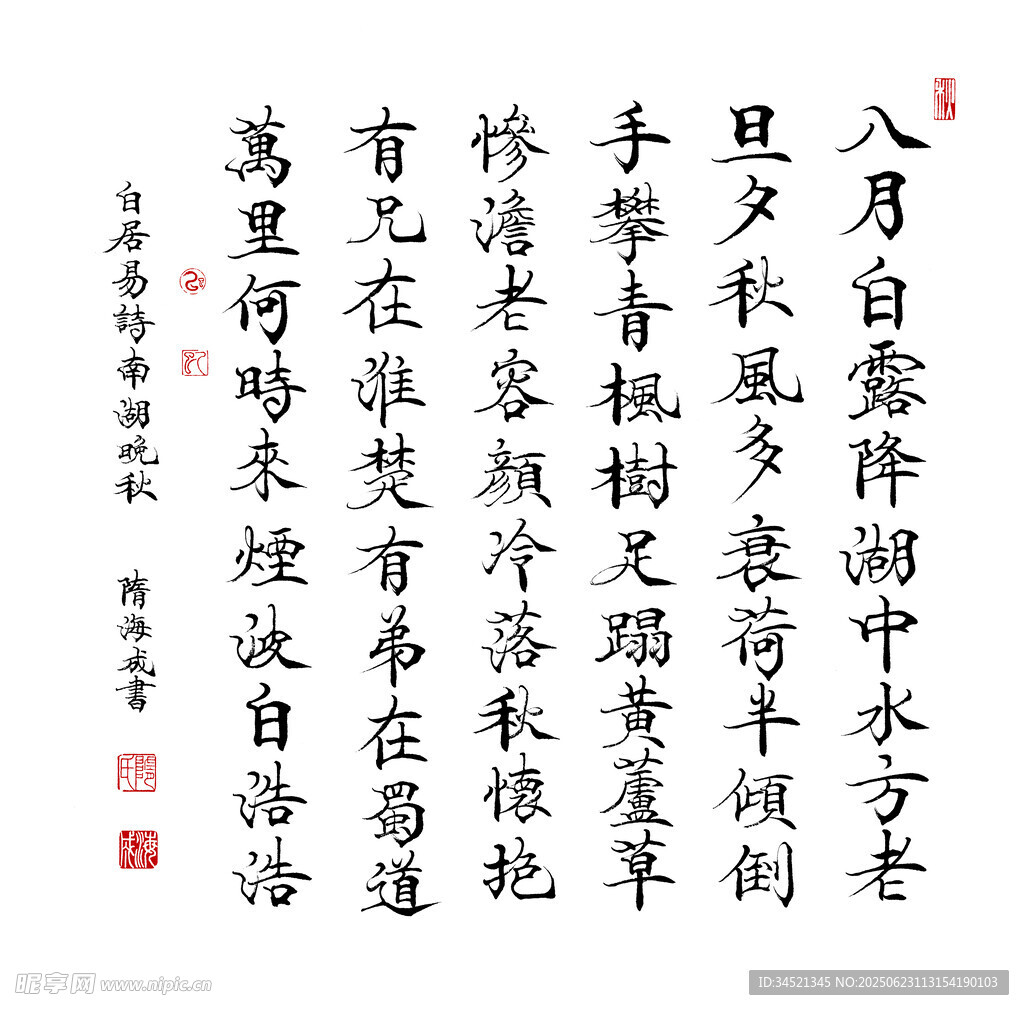 八月白露降湖中水方老
旦夕秋風多衰荷半傾倒
手攀青楓樹足蹋黃蘆草
慘澹老容顏冷落秋懷抱
有兄在淮楚有弟在蜀道
萬里何時來煙波白浩浩
白居易詩南湖晚秋 隋海成書
秋
隋氏
海成
昵享网 www.nipic.cn
ID:34521345 NO:20250623113154190103